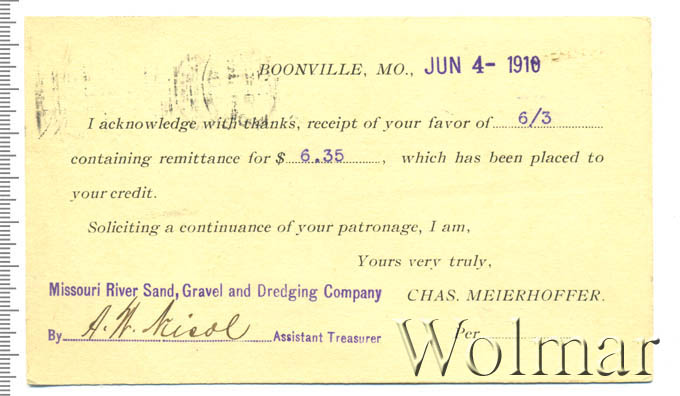 BOONVILLE, MO., JUN 4- 1910
I acknowledge with thanks, receipt of your favor of 6/3
containing remittance for $ 6.35 , which has been placed to
your credit.
Soliciting a continuance of your patronage, I am,
Yours very truly,
Missouri River Sand, Gravel and Dredging Company CHAS. MEIERHOFFER.
By A. W. Assistant Treasurer Per
Wolmar